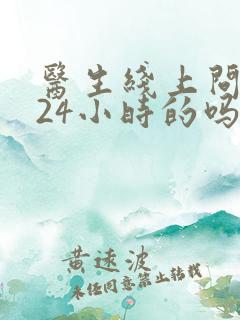 醫生綫上問
24小時的嗎
黄逺波
未任同意禁止转载